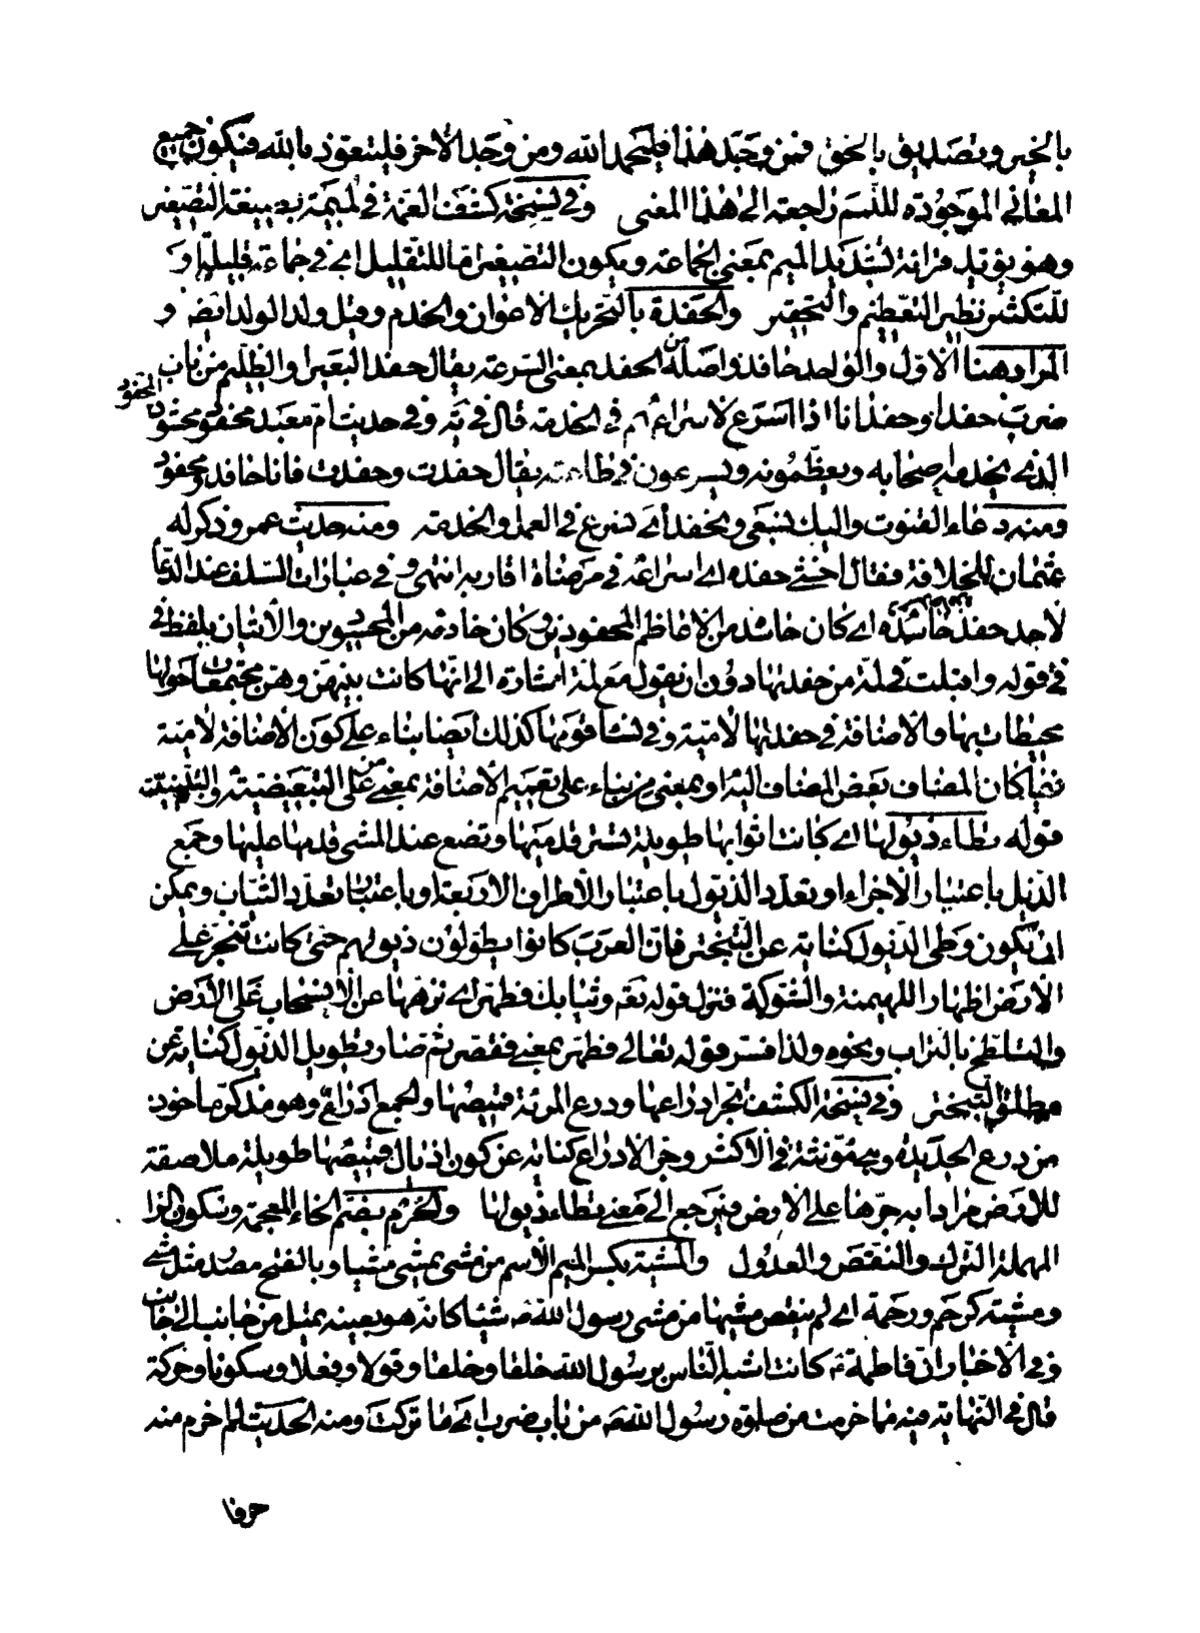 بالخير وتصديق بالحق فمن وجد هذا فليحمد الله ومن وجد الأخر فليتعوذ بالله فيكون جميع
المعاني الموجودة لللمم راجعة الى هذا المعنى وفي نسخة كشف الغمة في لميمة بصيغة التصغير
وهو يؤيد قرائة تشديد الميم بمعنى الجماعة ويكون التصغير اما للتقليل اى في جماعة قليلة او
للتكثير نظير التعظيم والتحقير والحفدة بالتحريك الاعوان والخدم وقيل ولد الولد ايضا و
المراد هنا الاول والواحد حافد واصله من الحفد بمعنى السرعة يقال حفد البعير والظليم من باب
ضرب حفدا وحفدانا اذا اسرع لاسراعهم في الخدمة قال في يه وفي حديث ام معبد محفود محشود المحفود
الذي يخدمه اصحابه ويعظمونه ويسرعون في طاعته يقال حفدت وحفدت فانا حافد ومحفود
ومنه دعاء القنوت واليك نسعى ونحفد أى نسرع في العمل والخدمة ومنه حديث عمر وذكر له
عثمان للخلافة فقال اخشى حفده اى اسراعه في مرضاة اقاربه انتهى وفي عبارات السلف عند الدعاء
لاحد حفد حاشده اى كان حاشد من الافاظم المحفودين وكان خادمه من المحسوبين والأتيان بلفظ في
في قوله واقبلت في لمة من حفدتها دون ان يقول مع لمة اشارة الى انها كانت بينهن وهن مجتمعات حولها
محيطات بها والاضافة في حفدتها لأمية وفي نساء قومها كذلك ايضا بناء على كون الأضافة لأمية
فيما كان المضاف بعض المضاف اليه او بمعنى من بناء على تعميم الأضافة بمعنى من على التبعيضية والتبيينية
قوله تطاء ذيولها اى كانت اثوابها طويلة تستر قدميها وتضع عند المشى قدمها عليها وجمع
الذيل باعتبار الأجزاء او تعدد الذيول باعتبار الأطراف الاربعة او باعتبار تعدد الثياب ويمكن
ان يكون وطى الذيول كناية عن التبختر فان العرب كانوا يطولون ذيولهم حتى كانت تنجر على
الأرض اظهارا للهيمنة والشوكة فنزل قوله تعم وثيابك فطهر اى نزهها عن الانسحاب على الأرض
والتلطخ بالتراب ونحوه ولذا فسر قوله تعالى فطهر بمعنى فقصر ثم صار تطويل الذيول كناية عن
مطلق التبختر وفي نسخة الكشف تجر ادراعها ودرع المرئة قميصها والجمع ادراع وهو مذكر ماخوذ
من درع الحديدة وهي مؤنثة في الأكثر وجر الادراع كناية عن كون اذيال قميصها طويلة ملاصقة
للأرض مرادا به جرها على الأرض فيرجع الى معنى تطاء ذيولها والخرم بضم الخاء المعجمة وسكون الراء
المهملة الترك والنقص والعدول والمشية بكسر الميم الأسم من مشى يمشى مشيا وبالفتح مصدر مثل مشى
ومشية كرحم ورحمة اى لم ينقص مشيها من مشى رسول الله ص شيئا كانه هو بعينه يمثل من جانب الى جانب
وفي الأخبار ان فاطمة ع كانت اشبه الناس برسول الله خلقا وخلقا وقولا وفعلا وسكونا وحركة
قال في النهاية فيه ما خرمت من صلوة رسول الله ص من باب ضرب اى ما تركت ومنه الحديث لم اخرم منه
حرفا